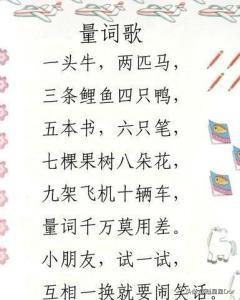 量词歌
一头牛，两匹马，
三条鲤鱼四只鸭，
五本书，六只笔，
七棵果树八朵花，
九架飞机十辆车，
量词千万莫用差。
小朋友，试一试，
互相一换就要闹笑话。